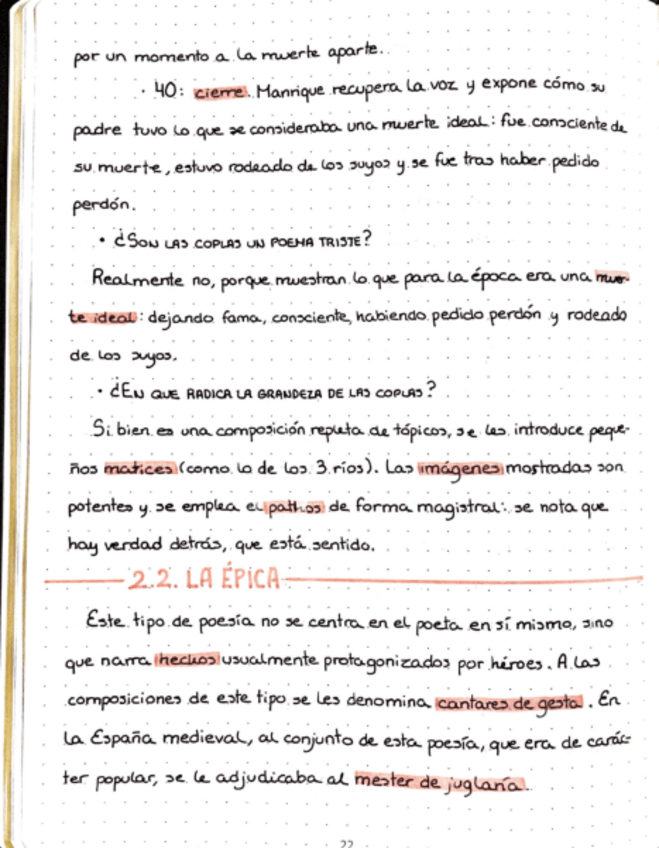 por un momento a la muerte aparte.
· 40: cierre. Manrique recupera la voz y expone cómo su
padre tuvo lo que se consideraba una muerte ideal: fue consciente de
su muerte, estuvo rodeado de los suyos y se fue tras haber pedido
perdón.
• ¿SON LAS COPLAS UN POEMA TRISTE?
Realmente no, porque muestran lo que para la época era una muer-
te ideal: dejando fama, consciente, habiendo pedido perdón y rodeado
de los suyos.
• ¿EN QUE RADICA LA GRANDEZA DE LAS COPLAS?
Si bien es una composición repleta de tópicos, se les introduce peque-
ños matices (como lo de los 3 ríos). Las imágenes mostradas son
potentes y se emplea el pathos de forma magistral: se nota que
hay verdad detrás, que está sentido.
2.2. LA ÉPICA
Este tipo de poesía no se centra en el poeta en sí mismo, sino
que narra hechos usualmente protagonizados por héroes. A las
composiciones de este tipo se les denomina cantares de gesta. En
la España medieval, al conjunto de esta poesía, que era de carác-
ter popular, se le adjudicaba al mester de juglaría.
22